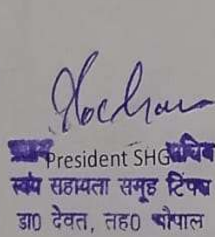 President SHG सचिव
स्वयं सहायता समूह टिपरा
डा0 देवत, तह0 चौपाल